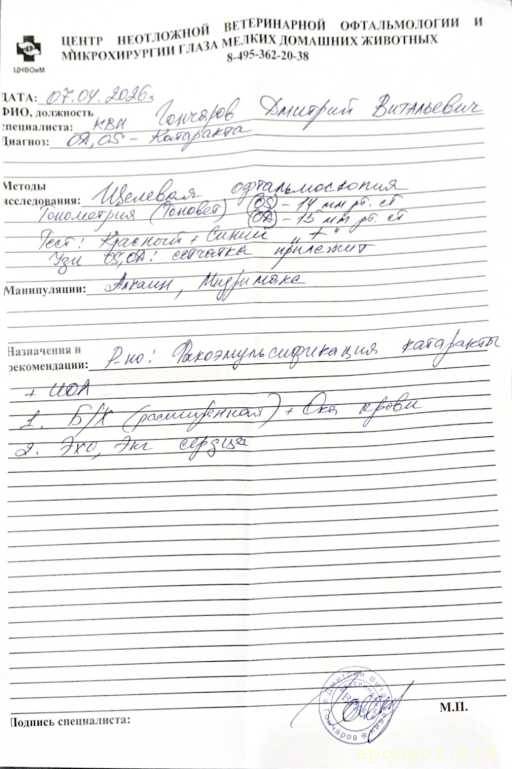 ЦЕНТР НЕОТЛОЖНОЙ ВЕТЕРИНАРНОЙ ОФТАЛЬМОЛОГИИ И
МИКРОХИРУРГИИ ГЛАЗА МЕЛКИХ ДОМАШНИХ ЖИВОТНЫХ
8-495-362-20-38
ЦНВОиМ
ДАТА: 07.04.2026г
ФИО, должность
специалиста: КВН Гончаров Дмитрий Витальевич
Диагноз: OD, OS – Катаракта
Методы
исследования: Щелевая офтальмоскопия
Тонометрия (Тоновет) OS – 14 мм рт. ст
OD – 15 мм рт. ст
Тест: Красный + Синий „+“
Узи OS, OD: сетчатка прилежит
Манипуляции: Алкаин, Мидримакс
Назначения и
рекомендации: Р-но: Факоэмульсификация катаракты
+ ИОЛ
1. Б/Х (расширенная) + Оак крови
2. Эхо, Экг сердца
Подпись специалиста:
М.П.